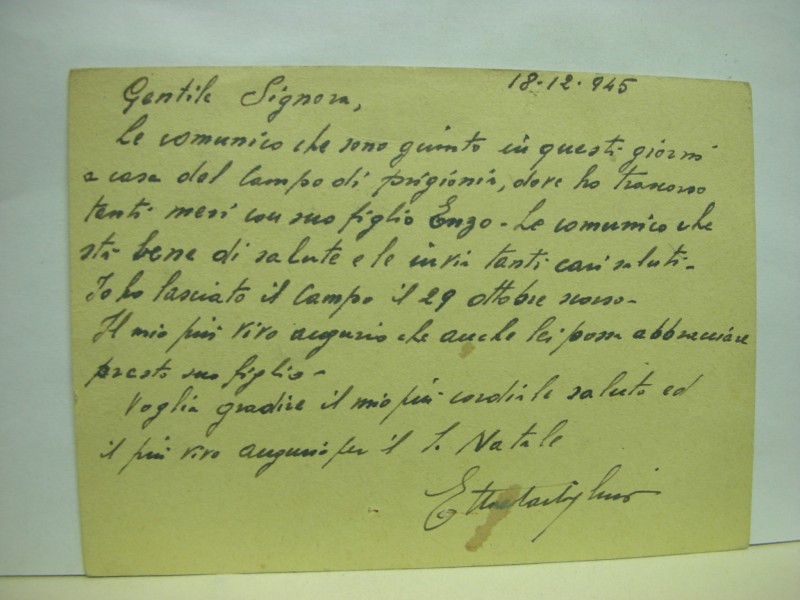 18-12-945
Gentile Signora,
Le comunico che sono giunto in questi giorni
a casa dal Campo di prigionia, dove ho trascorso
tanti mesi con suo figlio Enzo - Le comunico che
stà bene di salute e le invia tanti cari saluti -
Io ho lasciato il Campo il 29 ottobre scorso -
Il mio più vivo augurio che anche lei possa abbracciare
presto suo figlio -
Voglia gradire il mio più cordiale saluto ed
il più vivo augurio per il S. Natale